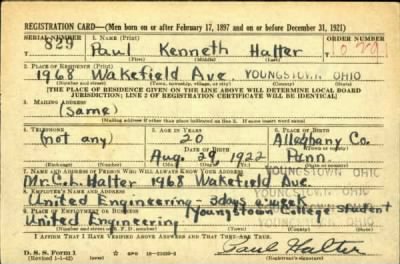 REGISTRATION CARD—(Men born on or after February 17, 1897 and on or before December 31, 1921)
SERIAL NUMBER 1. NAME (Print) ORDER NUMBER
829 Paul Kenneth Halter
(First) (Middle) (Last)
2. PLACE OF RESIDENCE (Print)
1968 Wakefield Ave. YOUNGSTOWN OHIO
(Number and street) (Town, township, village, or city) (County) (State)
[THE PLACE OF RESIDENCE GIVEN ON THE LINE ABOVE WILL DETERMINE LOCAL BOARD
JURISDICTION; LINE 2 OF REGISTRATION CERTIFICATE WILL BE IDENTICAL]
3. MAILING ADDRESS
(Same)
[Mailing address if other than place indicated on line 2. If same insert word same]
4. TELEPHONE 5. AGE IN YEARS 6. PLACE OF BIRTH
(not any) 20 Alleghany Co.
DATE OF BIRTH (Town or county)
Aug. 29, 1922 Penn.
(Exchange) (Number) (Mo.) (Day) (Yr.) (State or country)
7. NAME AND ADDRESS OF PERSON WHO WILL ALWAYS KNOW YOUR ADDRESS YOUNGSTOWN OHIO
Mr. C. L. Halter 1968 Wakefield Ave.
8. EMPLOYER'S NAME AND ADDRESS
United Engineering - 3days a week
Youngstown College student
9. PLACE OF EMPLOYMENT OR BUSINESS
United Engineering YOUNGSTOWN OHIO
(Number and street or R. F. D. number) (Town) (County) (State)
I AFFIRM THAT I HAVE VERIFIED ABOVE ANSWERS AND THAT THEY ARE TRUE.
D. S. S. Form 1
(Revised 1-1-42) Paul Halter
(Registrant's signature)